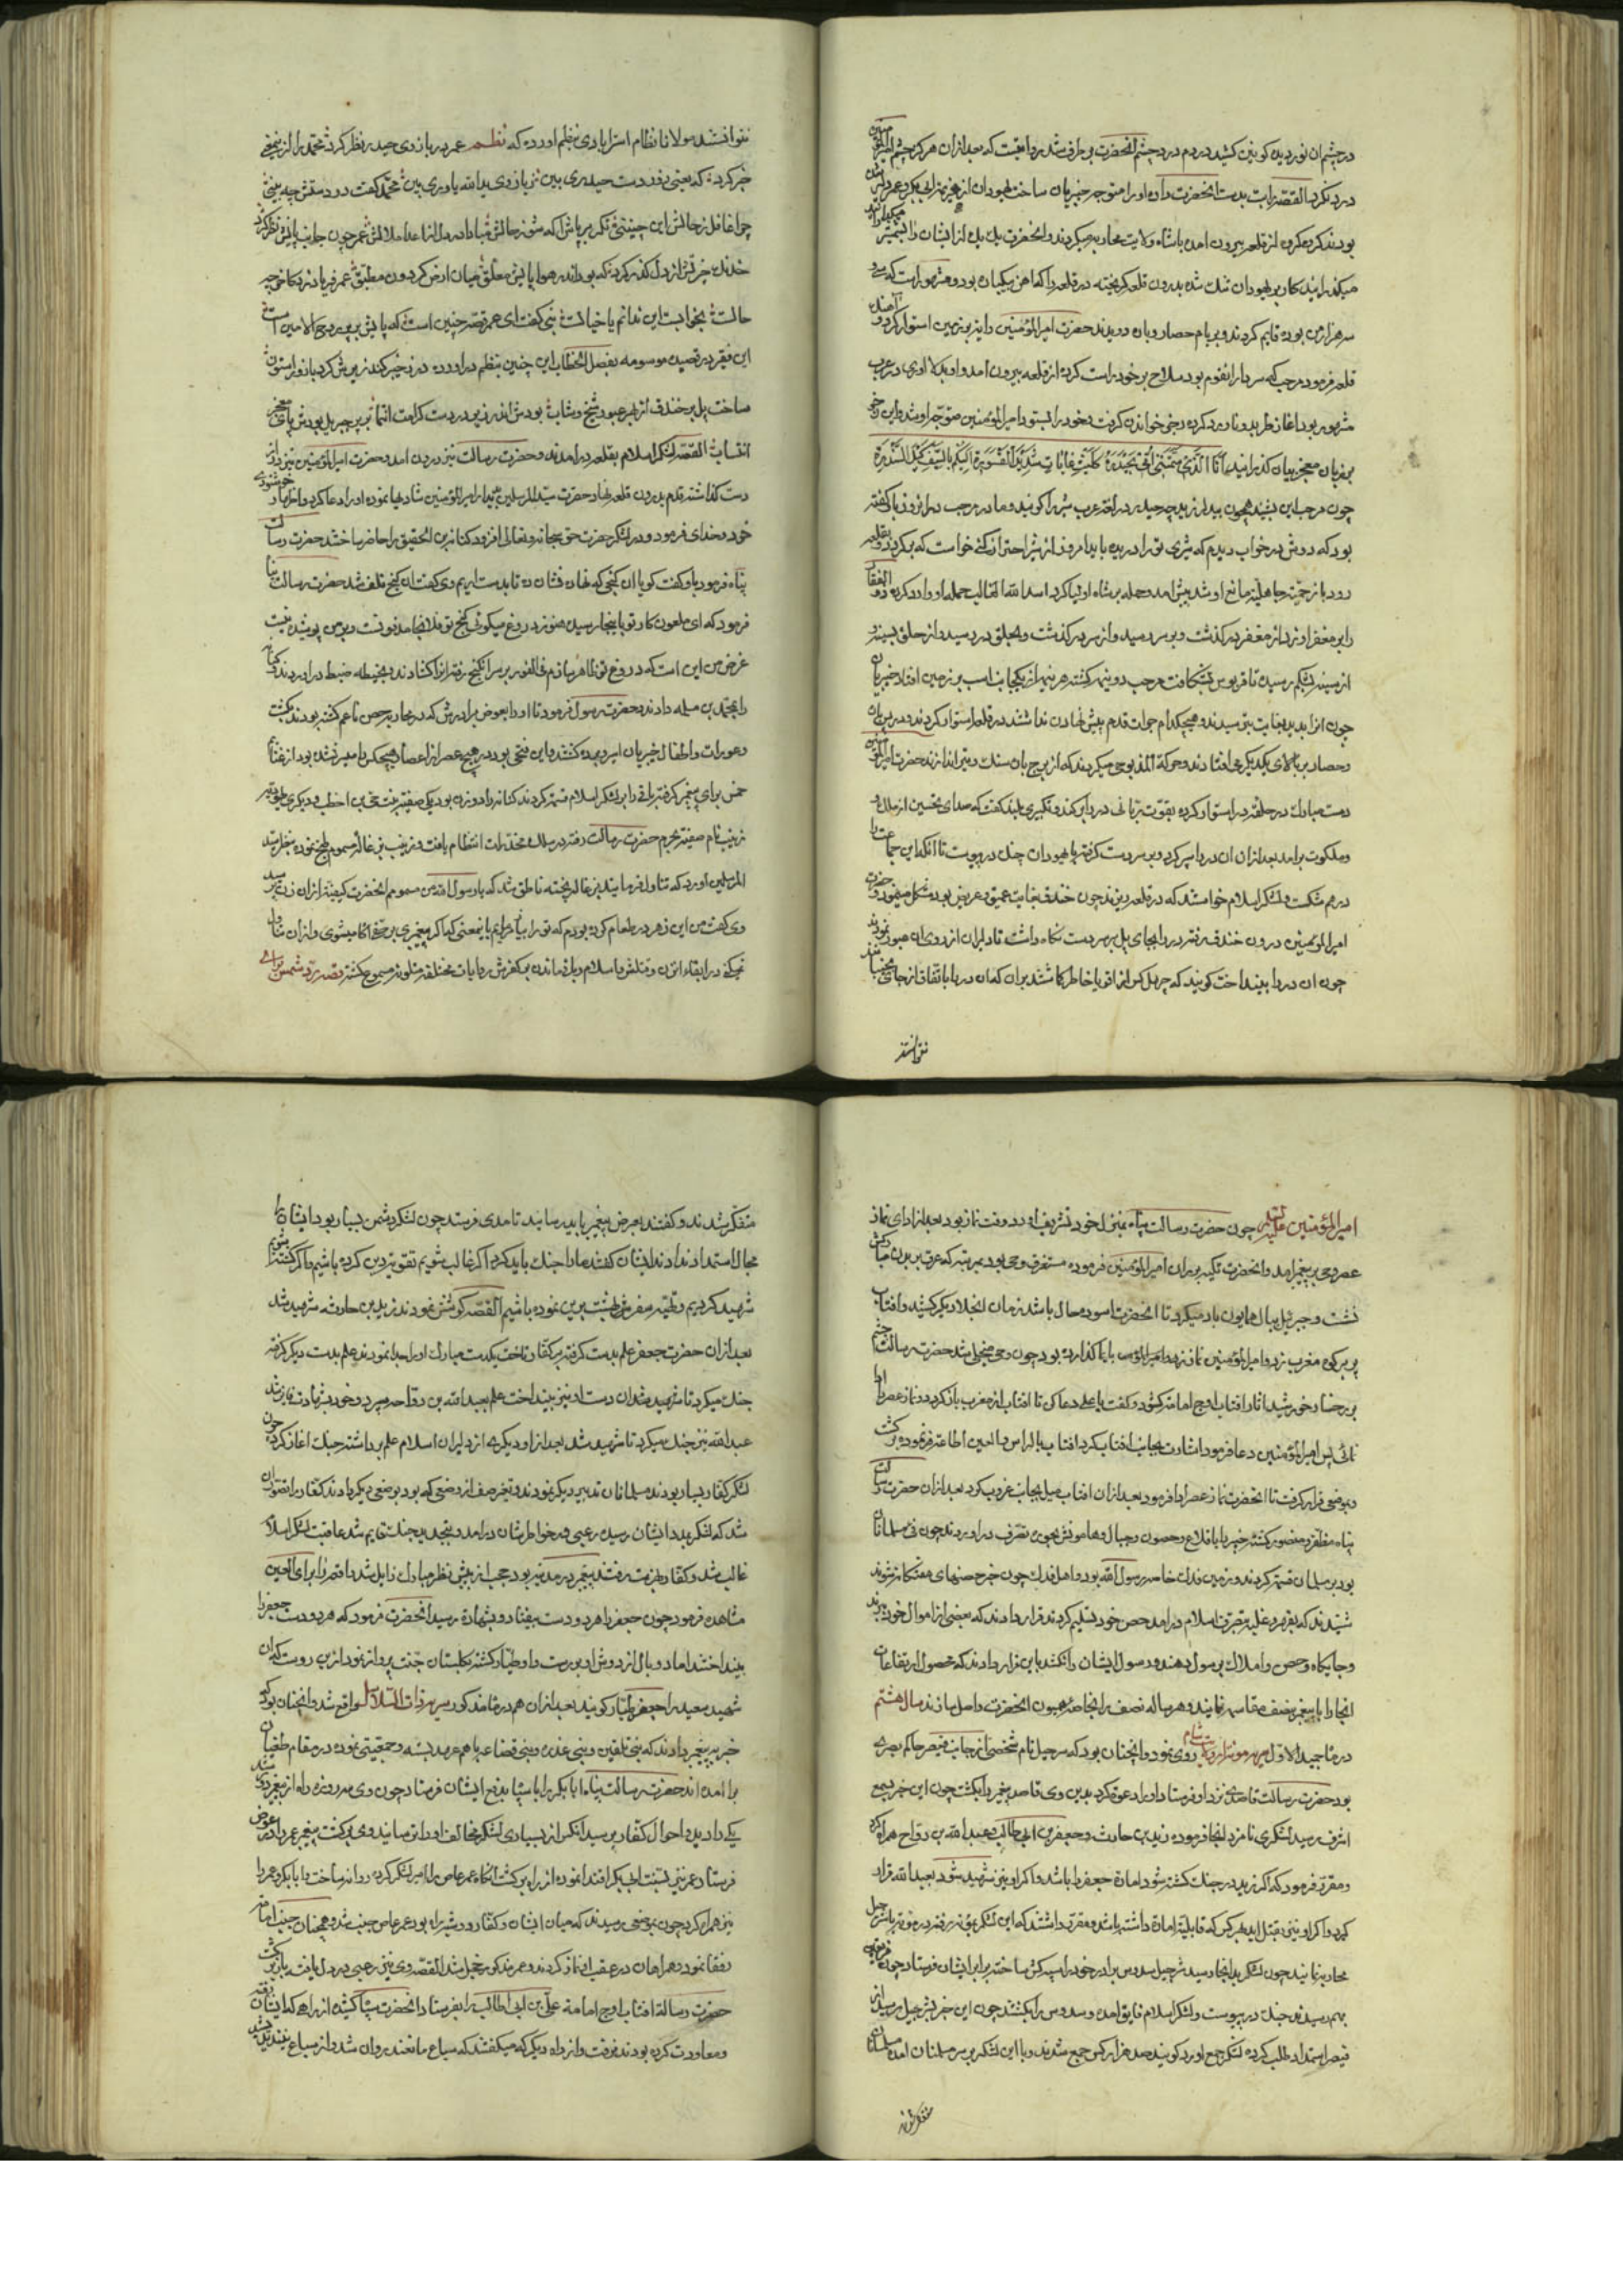 در چشم ان نور دیده کونین کشید در دم درد چشم آنحضرت برطرف شد روایتست که بعد ازان هرگز چشم امیرالمؤمنین
درد نکرد القصّه رایت بدست آنحضرت داده او را متوجه خیبریان ساخت یهودان از
بودند کرده از قلعه بیرون امده با شاه ولایت محاربه میکردند و آنحضرت یک یک از ایشان را بشمشیر
میکذرانید کار بر یهودان تنک شده بدرون قلعه کریخته در قلعه را که اهن یکپاره بود و مشهور است که سی و
سه هزار من بوده قایم کردند و بر بام حصار و باره دویدند حضرت امیرالمؤمنین رایت بر زمین استوار کرد و
قلعه فرمود مرحب که سردار انقوم بود سلاح بر خود راست کرده از قلعه بیرون امد و او بدلاوری در عرب
مشهور بود اغاز طرید و ناورد کرده رجز خواندن کرفت و خود را بستود امیرالمؤمنین متوجه او شد و این رجز
بر زبان معجز بیان کذرانید انا الذی سمتنی امی حیدره کلیث غابات شدید القسوره اکیلکم بالسیف کیل السندره
چون مرحب این بشنید همچون بید لرزید چه حیدر در لغت عرب شیر را کویند و مادر مرحب در انروز با او کفته
بود که دوش در خواب دیدم که شیری تو را دریده باید امروز از شیر احتراز کنی خواست که برکردد و بقلعه
رود باز حمیّت جاهلیّه مانع او شد پیش امد و حمله بر شاه اولیا کرد اسد الله الغالب حمله او را رد کرده ذوالفقار
را بر مغفر او زد از مغفر در کذشت و بر سر رسید و از سر در کذشت و بحلق در رسید و از حلق بسینه و
از سینه بشکم رسیده تا قربوس بشکافت مرحب دو نیم کشته هر نیم از یکجانب اسب بر زمین افتاد خیبریان
چون انرا بدیدند بغایت بترسیدند و هیچکدام جرات قدم پیش نهادن نداشتند در قلعه استوار کردند و در پس ان
و حصار بر بالای یکدیکر می افتادند و حرکة المذبوحی میکردند که از برج باره سنک و تیر اندازند حضرت امیرالمؤمنین
دست مبارک در حلقه در استوار کرده بقوت ربانی در را بر کند و تکبیری بلند کفت که صدای تحسین از ملک و
ملکوت برامد بعد ازان ان در را سپر کرد و بر سر دست کرفته با یهودان جنک در پیوست تا انکه این جماعت را
در هم شکست و لشکر اسلام خواستند که در قلعه ریزند چون خندق بغایت عمیق و عریض بود مشکل مینمود حضرت
امیرالمؤمنین درون خندق رفته در را بجای پل بر سر دست نکاه داشت تا دلیران از روی ان عبور نمودند
چون ان در را بینداخت کویند که چهل کس از اقویا خاطر کماشتند بران که ان در را باتفاق از جای بجنبانند
نتوانستند
نتوانستند مولانا نظام استرابادی بنظم اورده که نظم عمر در بازوی حیدر نظر کرد محمّد را از
خبر کرد که یعنی زور دست حیدری بین ز بازوی یدالله یاوری بین محمّد کفت در دستش چه بینی
چرا غافل ز حالش این چنینی نکر بر پاش اکه شو ز حالش مبادا در دل از اعدا ملالش عمر چون جانب پایش نظر کرد
خدنک حیرتش از دل کذر کرد که بود اندر هوا پایش معلق میان ارض کردون مطبق عمر فریاد زد کاخر چه
حالست بخوابست این ندانم یا خیالست نبی کفت ای عمر قصّه چنین است که پایش بر پر روح الامین است
این فقیر در قصیده موسومه بفصل الخطاب این چنین بنظم در اورده در ز خیبر کند زیرش کرد بازو را ستون
ساخت پل بر خندق از بهر عبور شیخ و شاب بودش اندر زیر در دست کرامت انتما بر پر جبریل بودش پای معجز
انتساب القصّه لشکر اسلام بقلعه درامدند و حضرت رسالت نیز درون امد و حضرت امیرالمؤمنین نیز در از
دست کذاشته قدم بدرون قلعه نهاد حضرت سیّد المرسلین بدیدار امیرالمؤمنین شادیها نموده او را دعا کرد و اظهار خوشنودی
خود و خدای فرمود و در لشکر حضرت حق سبحانه و تعالی افزود کنانه بن الحقیق را حاضر ساختند حضرت رسالت
پناه فرمود با او کفت کو با ان کنجی که نهان فلان ده تا بدست اریم وی کفت ان کنج تلف شد حضرت رسالت پناه
فرمود که ای ملعون کار تو باینجا رسیده هنوز دروغ میکوئی کنج تو فلانجا مدفونست و بر من پوشیده نیست
غرض من این است که دروغ تو ظاهر سازم فی الفور بر سر انکنج رفته انرا کشادند و بحیطه ضبط در اوردند کنانه
را بمحمّد بن مسلمه دادند و حضرت رسول فرمود تا او را بعوض برادرش که در محاربه حصن ناعم کشته بودند بکشت
و عورات و اطفال خیبریان اسیر و برده کشتند و این فتحی بود در هیچ عصر از اعصار هیچکس را میسر نشده بود از غنائم
خمس برای پیغمبر کرفته باقی را بر لشکر اسلام قسمت کردند کنانه را دو زن بود یکی صفیّه بنت حی بن اخطب و دیکری
زینب نام صفیّه بحرم حضرت رسالت رفته در سلک مخدّرات انتظام یافت و زینب بزغاله مسموم طبخ نموده بنظر سیّد
المرسلین اورد که تناول فرمایند بزغاله پخته ناطق شد که یا رسول الله من مسمومم آنحضرت کیفیّت ازان زن پرسید
وی کفت من این زهر در طعام کرده بودم که تو را بیازمایم باینمعنی که اکر پیغمبری بر حقّی اکاه میشوی و ازان تناول
نمیکنی در ابقاء انزن و قتلش باسلام در اوردن ماندن بر کفرش روایات مختلفه متلونه مسموع کشته قصّه ردّ شمس برای
امیرالمؤمنین علیه السلام چون حضرت رسالت پناه بمنزل خود تشریف اورد وقت نماز بود بعد از ادای نماز
عصر وحی بر پیغمبر امد و آنحضرت تکیه بر ران امیرالمؤمنین فرموده مستغرق وحی بود بمرتبه که عرق بر بدن مبارکش
نشست و جبرئیل ببال همایون باد میکرد تا آنحضرت اسوده حال باشد زمان انجلا دیر کشید و افتاب
پر بر کوه مغرب زد و امیرالمؤمنین نماز نزد و امیرالمؤمنین بایما کذارده بود چون وحی منجلی شد حضرت رسالت چشم
بر رخسار خورشید اثار افتاب اوج امامت کشود و کفت یا علی دعا کن تا افتاب از مغرب باز کردد و نماز عصر ادا
نمائی پس امیرالمؤمنین دعا فرمود اشارت بجانب افتاب کرد افتاب بالراس و العین اطاعت فرموده برکشت
و بموضعی قرار کرفت تا آنحضرت نماز عصر ادا فرمود بعد ازان افتاب میل بجانب غروب کرد بعد ازان حضرت رسالت
پناه مظفّر و منصور کشته خیبر را با قلاع و حصون و جبال و هامونش بحوزه تصرّف در اوردند چون فی مسلمانان
بود بر مسلمانان قسمت کردند و زمین فدک خاصه رسول الله بود و اهل فدک چون خبر حصنهای مفتوح
شنیدند که بقهر و غلبه بتصرّف اسلام درامد حصن خود تسلیم کردند قرار دادند که بعضی از اموال خود ببرند
و جایکاه و حصن و املاک برسول دهند و رسول ایشان را نکشد باین قرار دادند که حصول ارتفاعات
انجا را با پیغمبر بنصف مقاسمه نمایند و هر ساله نصف برانجا منسوبون آنحضرت واصل سازند سال هشتم
در ماه جمید الاوّل سریه موته از ولایت شام روی نمود و آنچنان بود که شرحبیل نام شخصی از جانب قیصر حاکم بصری
بود حضرت رسالت قاصدی نزد او فرستاد و او را دعوت کرد بدین وی قاصد پیغمبر را بکشت چون این خبر بسمع
اشرف رسید لشکری نامزد انجا فرموده زید بن حارث و جعفر بن ابی طالب و عبد الله بن رواح همراه کرد
و مقرّر فرمود که اکر زید در جنک کشته شود امارة جعفر را باشد و اکر او نیز شهید شود بعبد الله قرار
کیرد و اکر او نیز بقتل اید هر کس که قابلیّت امارة داشته باشد و مقرّر داشتند که این لشکر بموته رفته در موته با شرحبیل
محاربه نمایند چون لشکر بدانجا رسید شرحبیل سدوس برادر خود را سرکش ساخته برابر ایشان فرستاد چون فریقین
بهم رسیدند جنک در پیوست و لشکر اسلام فایق امده و سدوس را بکشتند چون این خبر بشرحبیل رسید از
قیصر استمداد طلب کرده لشکر جمع اورد کویند صد هزار کس جمع شدند و با این لشکر بر سر مسلمانان امده مسلمانان
متفکر شدند
متفکر شدند و کفتند بعرض پیغمبر باید رسانید تا مددی فرستد چون لشکر دشمن بسیار بود ایشان را
مجال استمداد ندادند ایشان کفتند ما را جنک باید کرد اکر غالب شویم تقویت دین کرده باشیم و اکر کشته شویم
شهید کردیم و بهشت برین نموده باشیم القصّه کوشش نمودند زید بن حارثه شهید شد
بعد ازان حضرت جعفر علم بدست کرفته بر کفّار تاخت یکدست مبارک او را جدا نمودند علم بدست دیکر کرفته
جنک میکرد تا شهید شد ان دست او نیز بینداخت علم بعبد الله بن رواحه سپرد و خود بشهادت فایز شد
عبد الله نیز جنک میکرد تا شهید شد بعد از او دیکری از دلیران اسلام علم برداشته جنک اغاز کرد چون
لشکر کفّار بسیار بودند مسلمانان تدبیر دیکر نمودند و تغییر صف از وضعی که بود بوضعی دیکر دادند کفّار را تصوّر ان
شد که لشکر بمدد ایشان رسیده رعبی در خواطرشان درامد و بتجدید جنک قایم شد عاقبت لشکر اسلام
غالب شد و کفّار بهزیمت رفتند پیغمبر در مدینه بود حجب از پیش نظر مبارک زایل شد واقعه را برای العین
مشاهده فرمود چون جعفر را هر دو دست بیفتاد و بشهادة رسید آنحضرت فرمود که هر دو دست جعفر را
بینداختند اما دو بال از دوش او برست و او طیّار کشته بکلستان جنّت پرواز نمود ازین روست که ان
شهید سعید را جعفر طیّار کویند بعد ازان هم در ماه مذکور سریه ذات السّلاسل واقع شد و آنچنان بود که
خبر به پیغمبر دادند که بنی قلقین و بنی عذره و بنی قضاعه با هم عهد بسته و جمعیّتی نموده در مقام طغیان
برامده اند حضرت رسالت پناه ابابکر را با سپاه بدفع ایشان فرستاد چون وی سه روزه راه از پیغمبر دور شد
یکی را دید و احوال کفّار پرسید آنکس از بسیاری لشکر مخالف او را ترسانید وی برکشت پیغمبر عمر را در عوض
فرستاد عمر نیز بسنّت ابی بکر اقتدا نموده از راه برکشت آنکاه عمرعاص را امیر لشکر کرده روانه ساخت و ابابکر و عمر را
نیز همراه کرد چون بموضعی رسیدند که میان ایشان و کفّار دو روزه راه بود عمرعاص جنب شد و همچنان جنب امامت
رفقا نمود و همراهان در عقب او نماز کردند القصّه وی نیز رعبی در دل یافت باز برکشت
حضرت رسالة افتاب اوج امامة علیّ بن ابی طالب را بفرستاد آنحضرت سپاه کشیده از راهی که ایشان رفته
و معاودت کرده بودند نرفت و از راه دیکر که میکفتند که سباع مانعند روان شد و از سباع نیندیشید